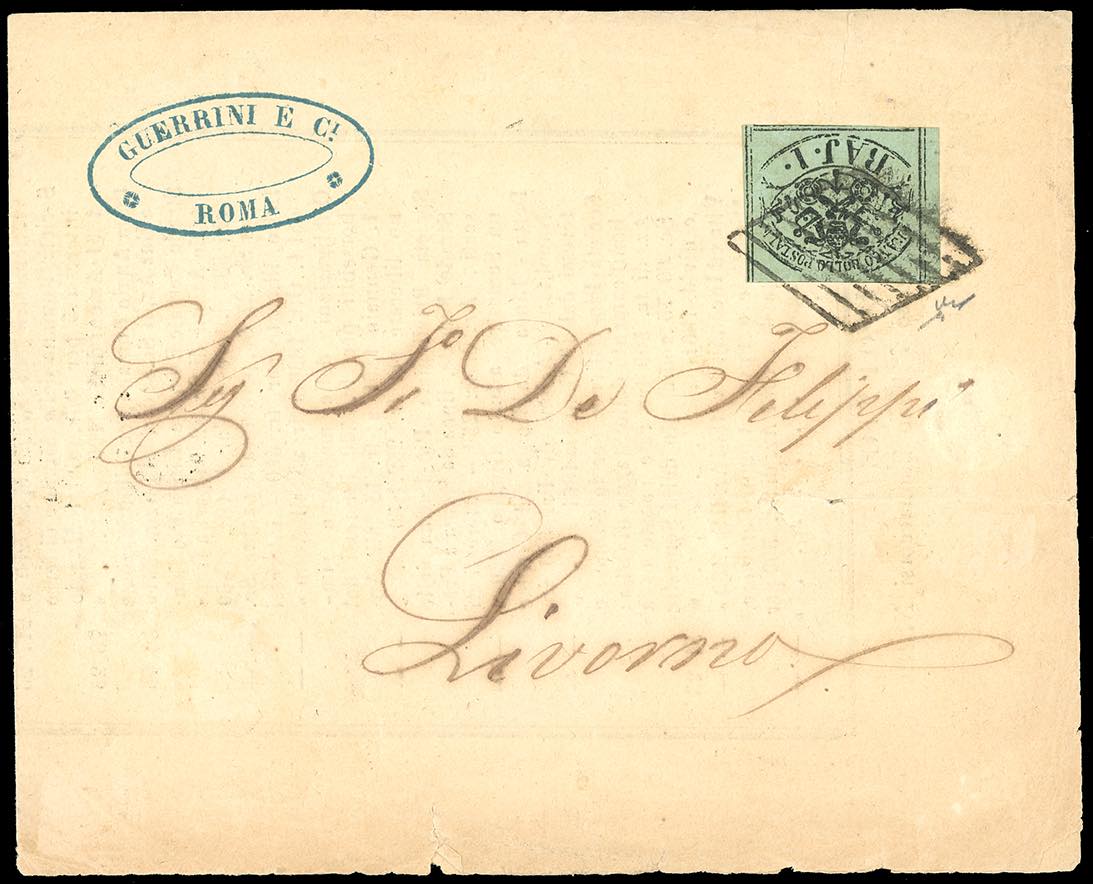 GUERRINI E C.I
ROMA
BAJ. 1.
FRANCO BOLLO POSTALE
Sig. De Filippi
Livorno